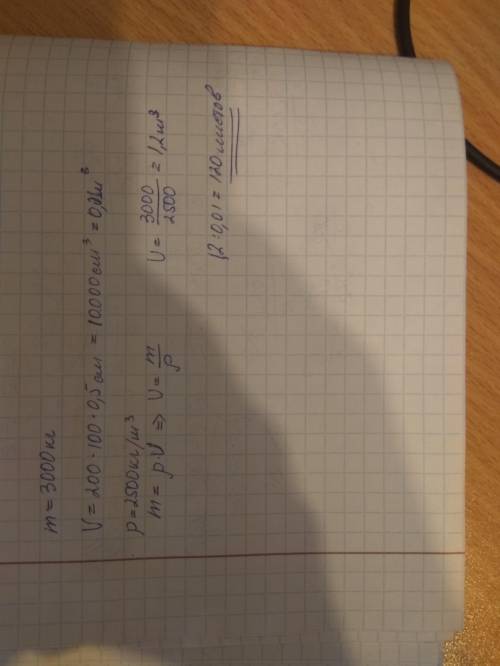 m = 3000 кг
V = 200 · 100 · 0,5 см = 10.000 см³ = 0,01 м³
ρ = 2500 кг/м³
m = ρ · V => V = m/ρ V = 3000/2500 = 1,2 м³
1,2 : 0,01 = 120 листов